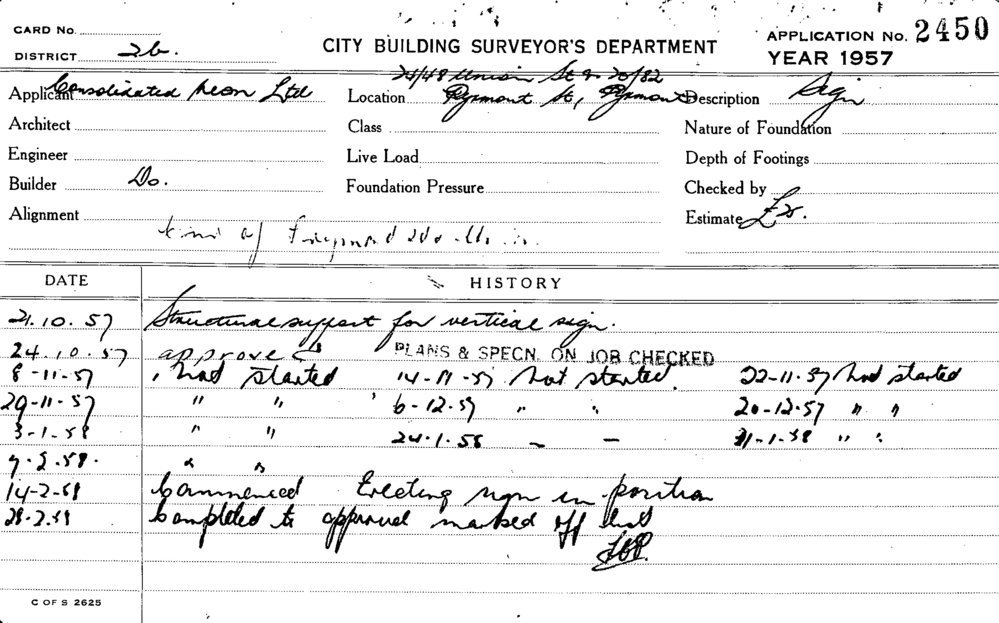 CARD No.
DISTRICT 2b.
CITY BUILDING SURVEYOR'S DEPARTMENT
APPLICATION No. 2450
YEAR 1957
24/48 Union St & 20/82
Applicant Consolidated Neon Ltd Location Pyrmont St, Pyrmont Description Sign
Architect Class Nature of Foundation
Engineer Live Load Depth of Footings
Builder Do. Foundation Pressure Checked by
Alignment Estimate £25.
DATE HISTORY
21.10.57 Structural support for vertical sign.
24.10.57 approved PLANS & SPECN. ON JOB CHECKED
8-11-57 Not started 14-11-57 Not started. 22-11-57 Not started
29-11-57 " " 6-12-57 " " 20-12-57 " "
3-1-58 " " 24-1-58 – – 31-1-58 " "
7.2.58. " "
14-2-58 Commenced Erecting sign in position
28-2-58 Completed to approval marked off list
C OF S 2625